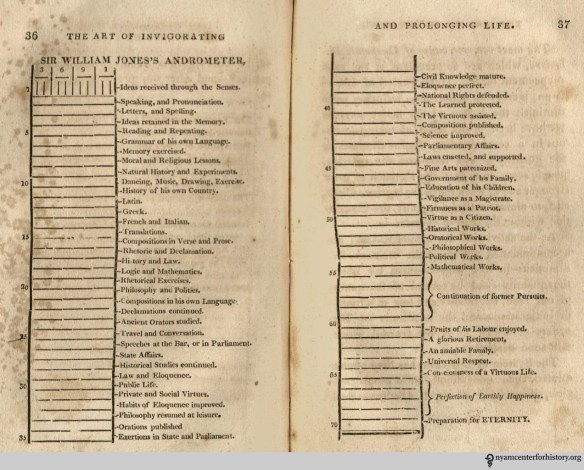 36
THE ART OF INVIGORATING
SIR WILLIAM JONES'S ANDROMETER,
3 6 9 1
1
Ideas received through the Senses.
Speaking, and Pronunciation.
Letters, and Spelling.
Ideas retained in the Memory.
5
Reading and Repeating.
Grammar of his own Language.
Memory exercised.
Moral and Religious Lessons.
Natural History and Experiments.
10
Dancing, Music, Drawing, Exercise.
History of his own Country.
Latin.
Greek.
French and Italian.
15
Translations.
Compositions in Verse and Prose.
Rhetoric and Declamation.
History and Law.
Logic and Mathematics.
Rhetorical Exercises.
20
Philosophy and Politics.
Compositions in his own Language
Declamations continued.
Ancient Orators studied.
Travel and Conversation.
25
Speeches at the Bar, or in Parliament.
State Affairs.
Historical Studies continued.
Law and Eloquence.
30
Public Life.
Private and Social Virtues.
Habits of Eloquence improved.
Philosophy resumed at leisure.
Orations published
35
Exertions in State and Parliament.
AND PROLONGING LIFE.
37
Civil Knowledge mature.
Eloquence perfect.
National Rights defended.
40
The Learned protected.
The Virtuous assisted.
Compositions published.
Science improved.
Parliamentary Affairs.
Laws enacted, and supported.
45
Fine Arts patronized.
Government of his Family.
Education of his Children.
Vigilance as a Magistrate.
Firmness as a Patriot.
50
Virtue as a Citizen.
Historical Works.
Oratorical Works.
Philosophical Works.
Political Works.
55
Mathematical Works.
Continuation of former Pursuits.
60
Fruits of his Labour enjoyed.
A glorious Retirement,
An amiable Family.
Universal Respect.
65
Consciousness of a Virtuous Life.
Perfection of Earthly Happiness.
70
Preparation for ETERNITY.
nyamcenterforhistory.org